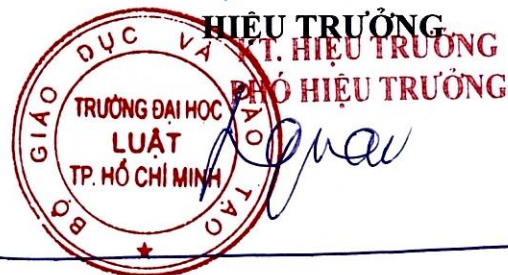 HIỆU TRƯỞNG
KT. HIỆU TRƯỞNG
PHÓ HIỆU TRƯỞNG
BỘ GIÁO DỤC VÀ ĐÀO TẠO
TRƯỜNG ĐẠI HỌC
LUẬT
TP. HỒ CHÍ MINH